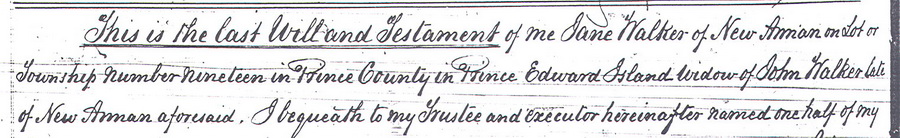 This is the last Will and Testament of me Jane Walker of New Annan on Lot or
Township Number nineteen in Prince County in Prince Edward Island Widow of John Walker late
of New Annan aforesaid. I bequeath to my Trustee and executor hereinafter named one half of my